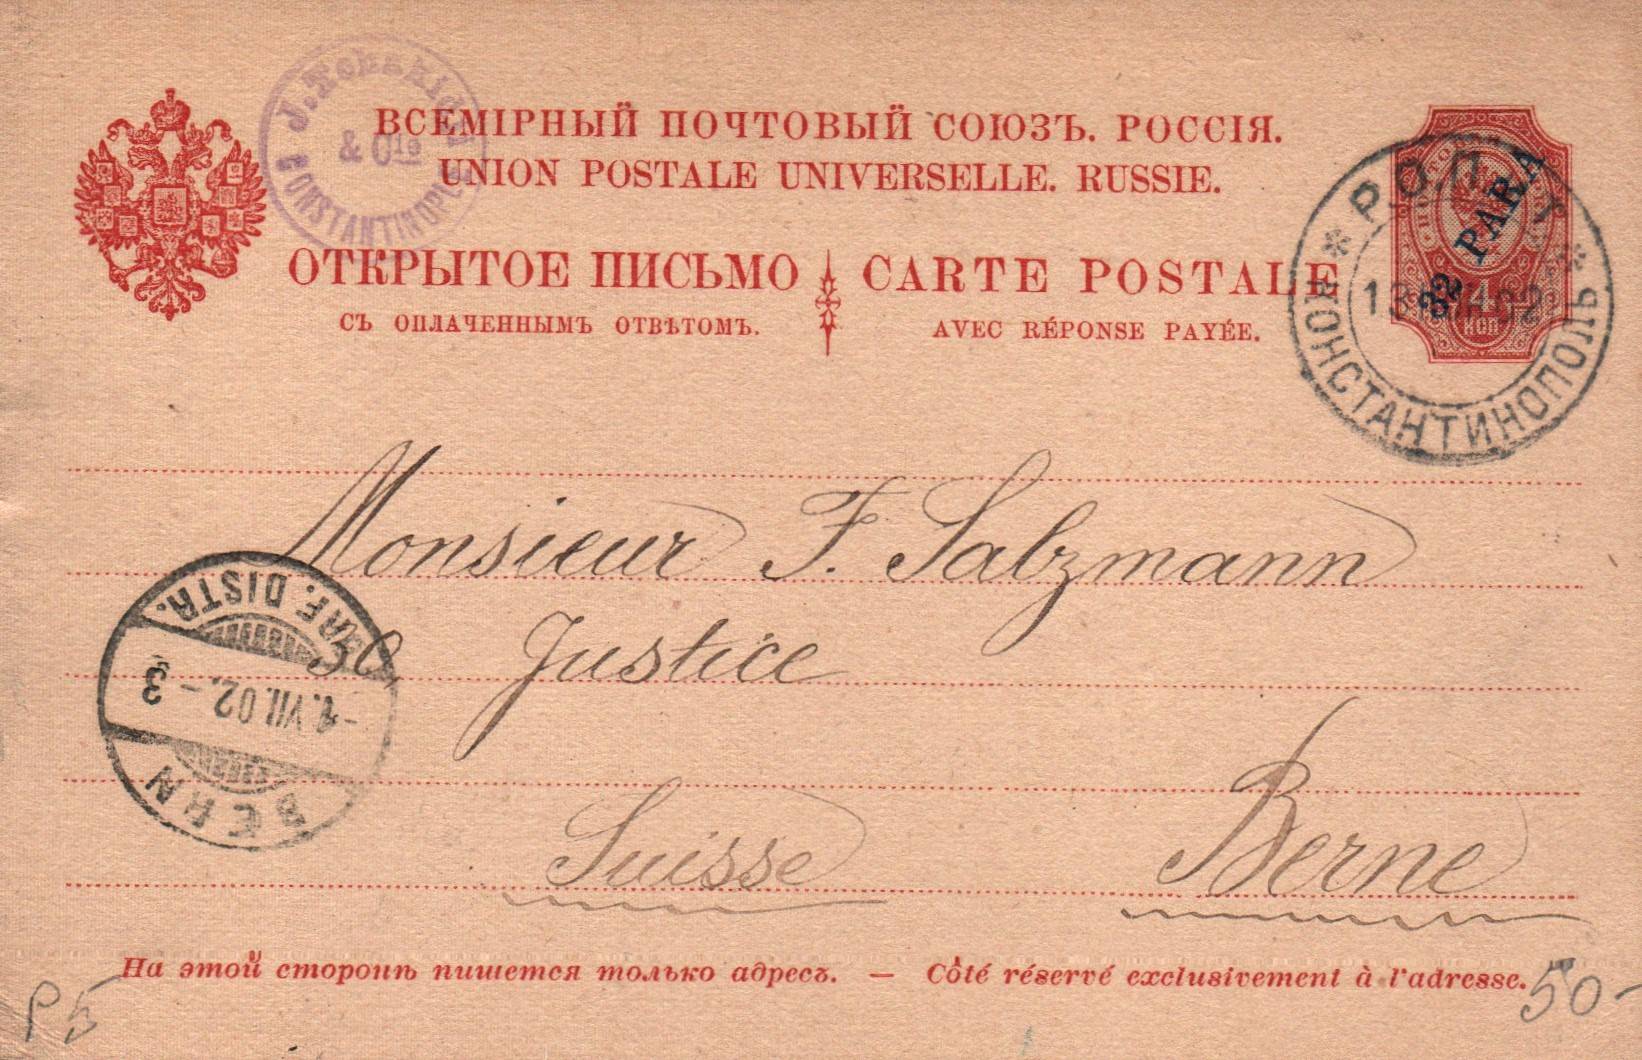 J. Tchakidji
& Cie
CONSTANTINOPLE
ВСЕМІРНЫЙ ПОЧТОВЫЙ СОЮЗЪ. РОССІЯ.
UNION POSTALE UNIVERSELLE. RUSSIE.
32 PARA
4
КОП
* Р.О.П. и Т. *
13 VII 02
КОНСТАНТИНОПОЛЬ
ОТКРЫТОЕ ПИСЬМО CARTE POSTALE
СЪ ОПЛАЧЕННЫМЪ ОТВѢТОМЪ. AVEC RÉPONSE PAYÉE.
Monsieur F. Salzmann
30, Justice
Berne
Suisse
BERN
-1.VII.02.-3
BRF. DISTR.
На этой сторонѣ пишется только адресъ. — Côté réservé exclusivement à l'adresse.
P5
50-